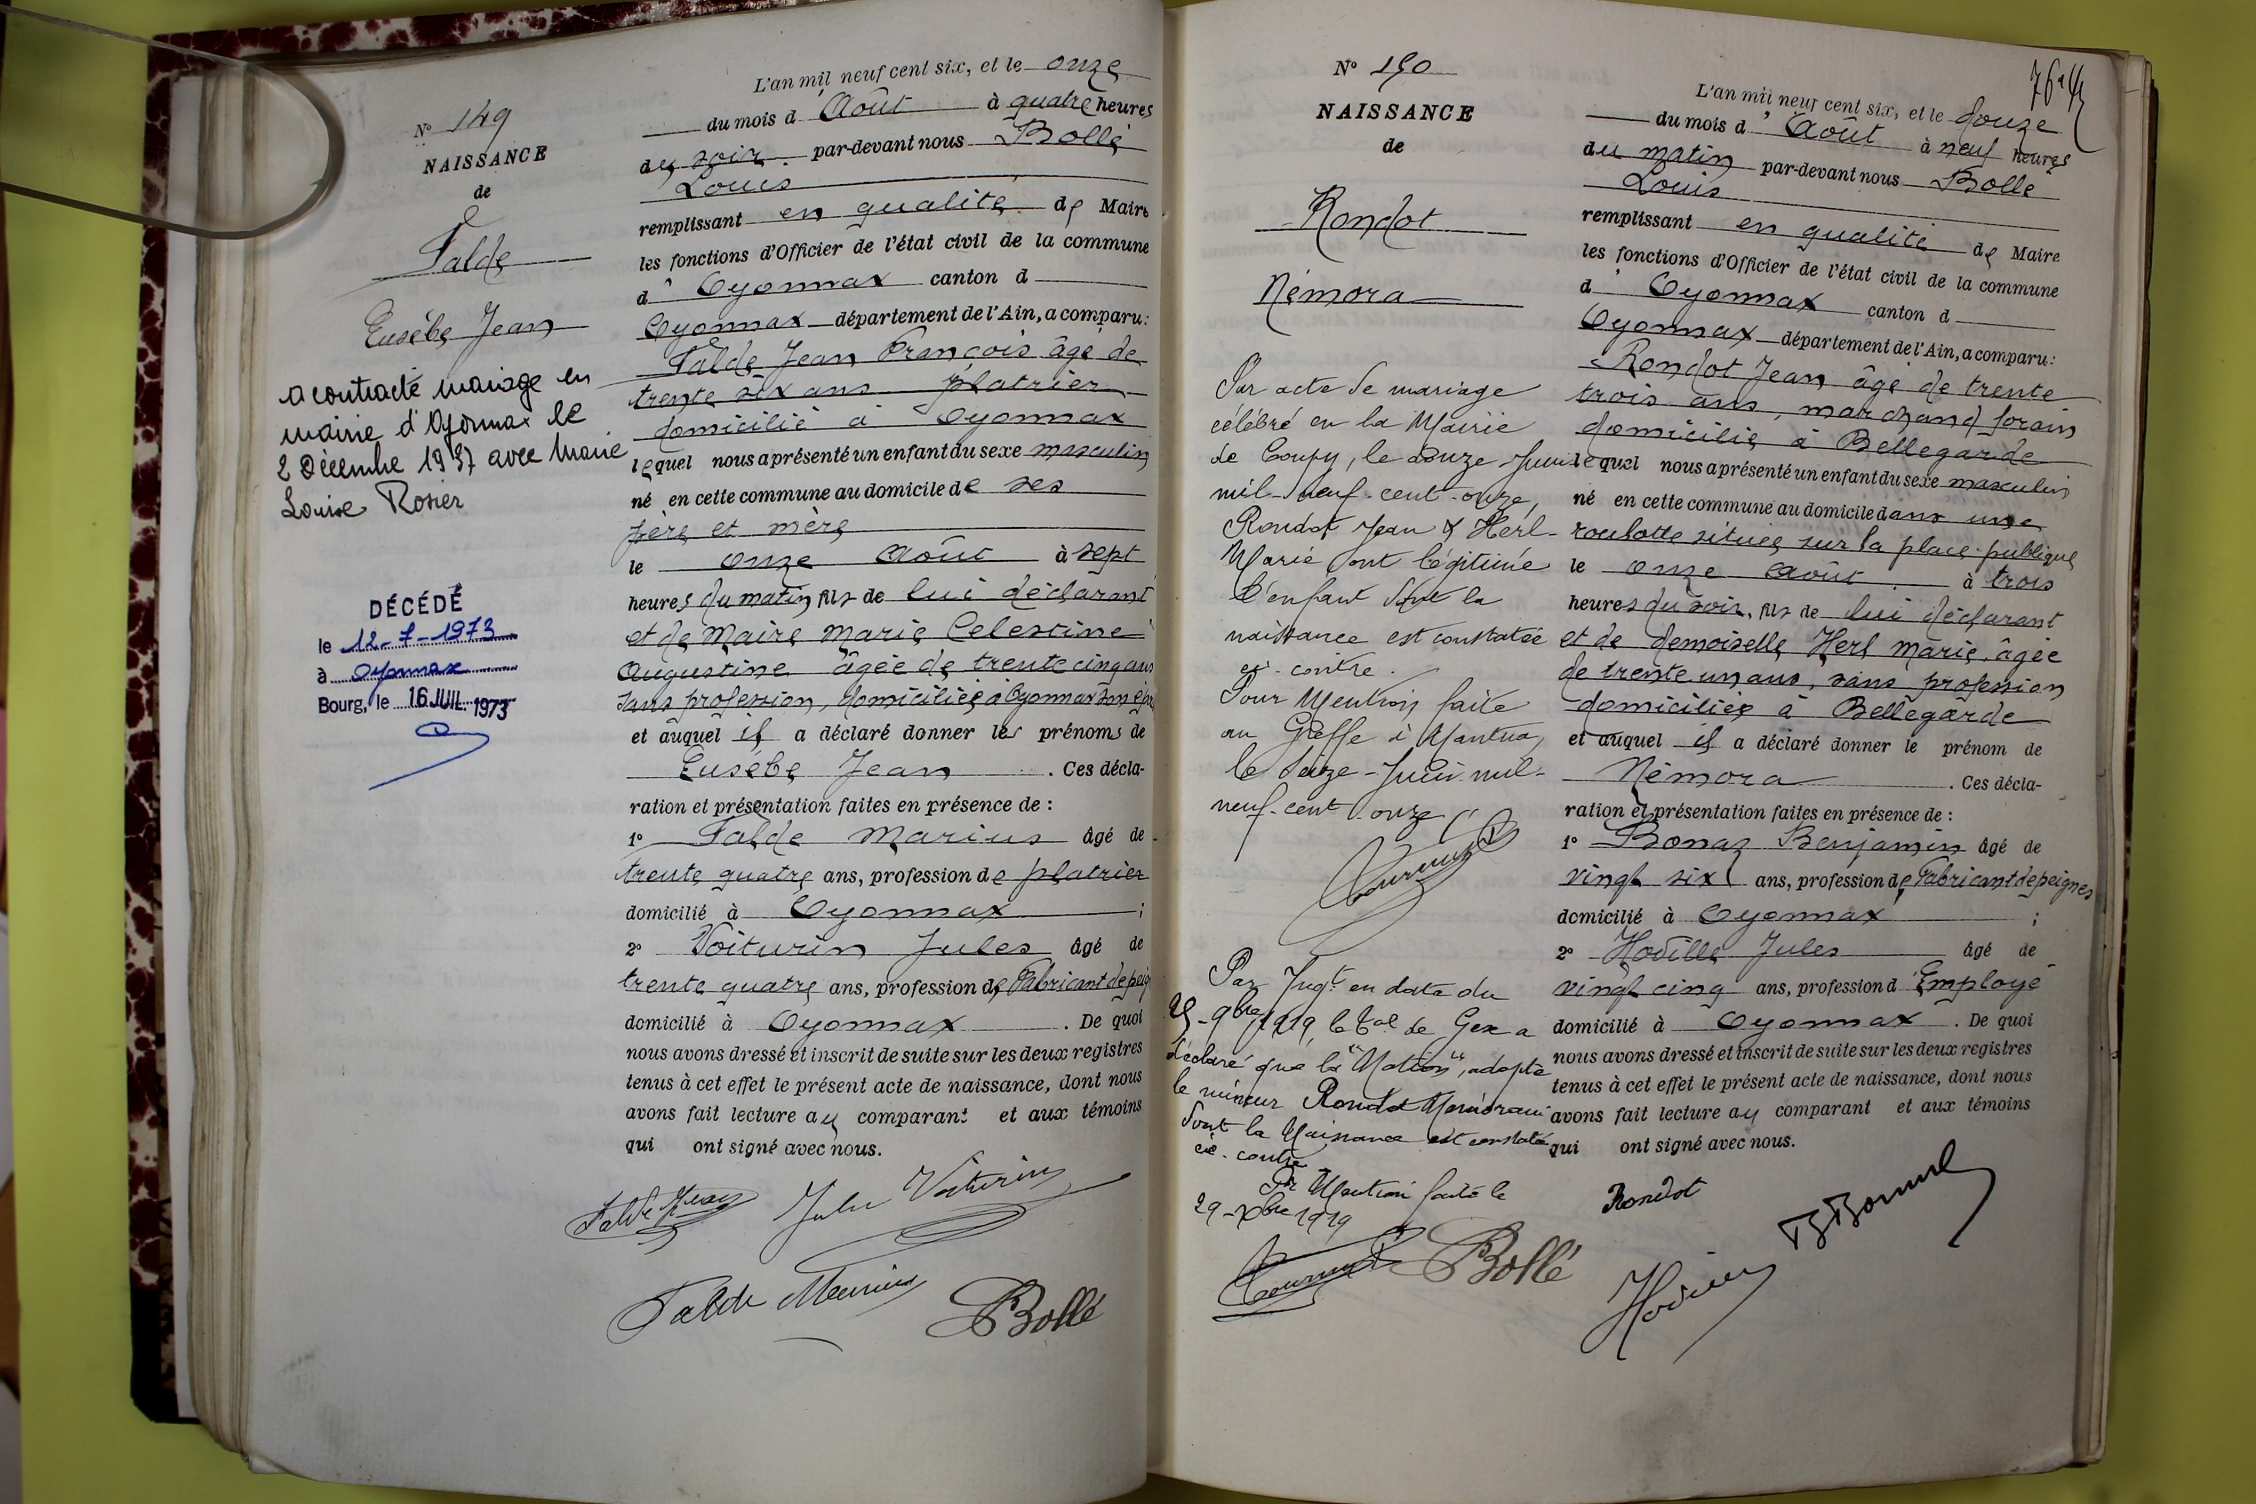 N° 149
NAISSANCE
de
Falde
Eusébe Jean
a contracté mariage en
mairie d'Oyonnax le
2 Décembre 1937 avec Marie
Louise Rosier
DÉCÉDÉ
le 12-7-1973
à Oyonnax
Bourg, le 16 JUIL. 1973
L'an mil neuf cent six, et le onze
du mois d'Août à quatre heures
du soir par-devant nous Bollé
Louis
remplissant en qualité de Maire
les fonctions d'Officier de l'état civil de la commune
d'Oyonnax canton d
Oyonnax département de l'Ain, a comparu:
Falde Jean François âgé de
trente six ans platrier
domicilié à Oyonnax
lequel nous a présenté un enfant du sexe masculin
né en cette commune au domicile de ses
père et mère
le onze Août à sept
heures du matin, fils de lui déclarant
et de Maire Marie Celestine
Augustine âgée de trente cinq ans
sans profession, domiciliée à Oyonnax son
et auquel il a déclaré donner les prénoms de
Eusébe Jean . Ces décla-
ration et présentation faites en présence de :
1° Falde Marius âgé de
trente quatre ans, profession de platrier
domicilié à Oyonnax ;
2° Voiturin Jules âgé de
trente quatre ans, profession de Fabricant de peig
domicilié à Oyonnax . De quoi
nous avons dressé et inscrit de suite sur les deux registres
tenus à cet effet le présent acte de naissance, dont nous
avons fait lecture au comparant et aux témoins
qui ont signé avec nous.
Falde Jean Jules Voiturin
Falde Marius Bollé
N° 150
NAISSANCE
de
Rondot
Némora
Par acte de mariage
célébré en la Mairie
de Coupy, le douze Juin
mil-neuf-cent-onze,
Rondot Jean & Herl
Marie ont légitimé
l'enfant dont la
naissance est constatée
ci-contre.
Pour Mention faite
au Greffe à Nantua,
le seize-Juin mil-
neuf-cent onze
Par Jugt en date du
25-9bre 1919, le Tal de Gex a
déclaré que la "Nation", adopte
le mineur Rondot
dont la Naissance est constatée
ci-contre
Pr Mention faite le
29-Xbre 1919
76
L'an mil neuf cent six, et le douze
du mois d'Août à neuf heures
du matin par-devant nous Bollé
Louis
remplissant en qualité de Maire
les fonctions d'Officier de l'état civil de la commune
d'Oyonnax canton d
Oyonnax département de l'Ain, a comparu:
Rondot Jean âgé de trente
trois ans, marchand forain
domicilié à Bellegarde
lequel nous a présenté un enfant du sexe masculin
né en cette commune au domicile dans une
roulotte située sur la place publique
le onze Août à trois
heures du soir, fils de lui déclarant
et de demoiselle Herl Marie, âgée
de trente un ans, sans profession
domiciliée à Bellegarde
et auquel il a déclaré donner le prénom de
Némora . Ces décla-
ration et présentation faites en présence de :
1° Bonaz Benjamin âgé de
vingt six ans, profession de Fabricant de peignes
domicilié à Oyonnax ;
2° Hoville Jules âgé de
vingt cinq ans, profession d'Employé
domicilié à Oyonnax . De quoi
nous avons dressé et inscrit de suite sur les deux registres
tenus à cet effet le présent acte de naissance, dont nous
avons fait lecture au comparant et aux témoins
qui ont signé avec nous.
Rondot
Bollé